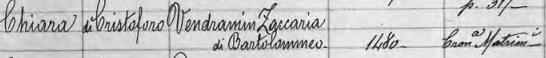 p. 317
Chiara di Cristoforo Vendramin Zaccaria
di Bartolommeo. 1480. Cron.a Matrim.i